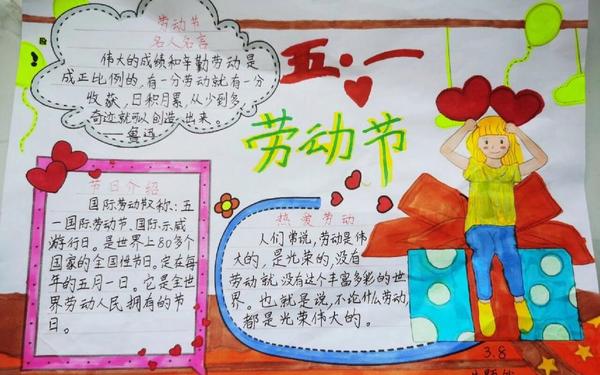 劳动节
名人名言
伟大的成绩和辛勤劳动是
成正比例的,有一分劳动就有一分
收获,日积月累,从少到多
奇迹就可以创造出来。
——鲁迅
五·一
劳动节
节日介绍
国际劳动节又称:五
一国际劳动节、国际示威
游行日。是世界上80多个
国家的全国性节日。定在每
年的五月一日。它是全世
界劳动人民拥有的节
日。
热爱劳动
人们常说,劳动是伟
大的,是光荣的,没有
劳动就没有这个丰富多彩的世
界。也就是说,不论什么劳动,
都是光荣伟大的。
3.8